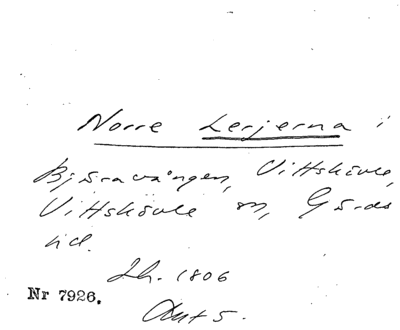 Norre Lerjerna i
Bjäravången, Vittskövle,
Vittskövle sn, Gärds
hd.
Lh. 1806
Nr 7926.
Akt 5.